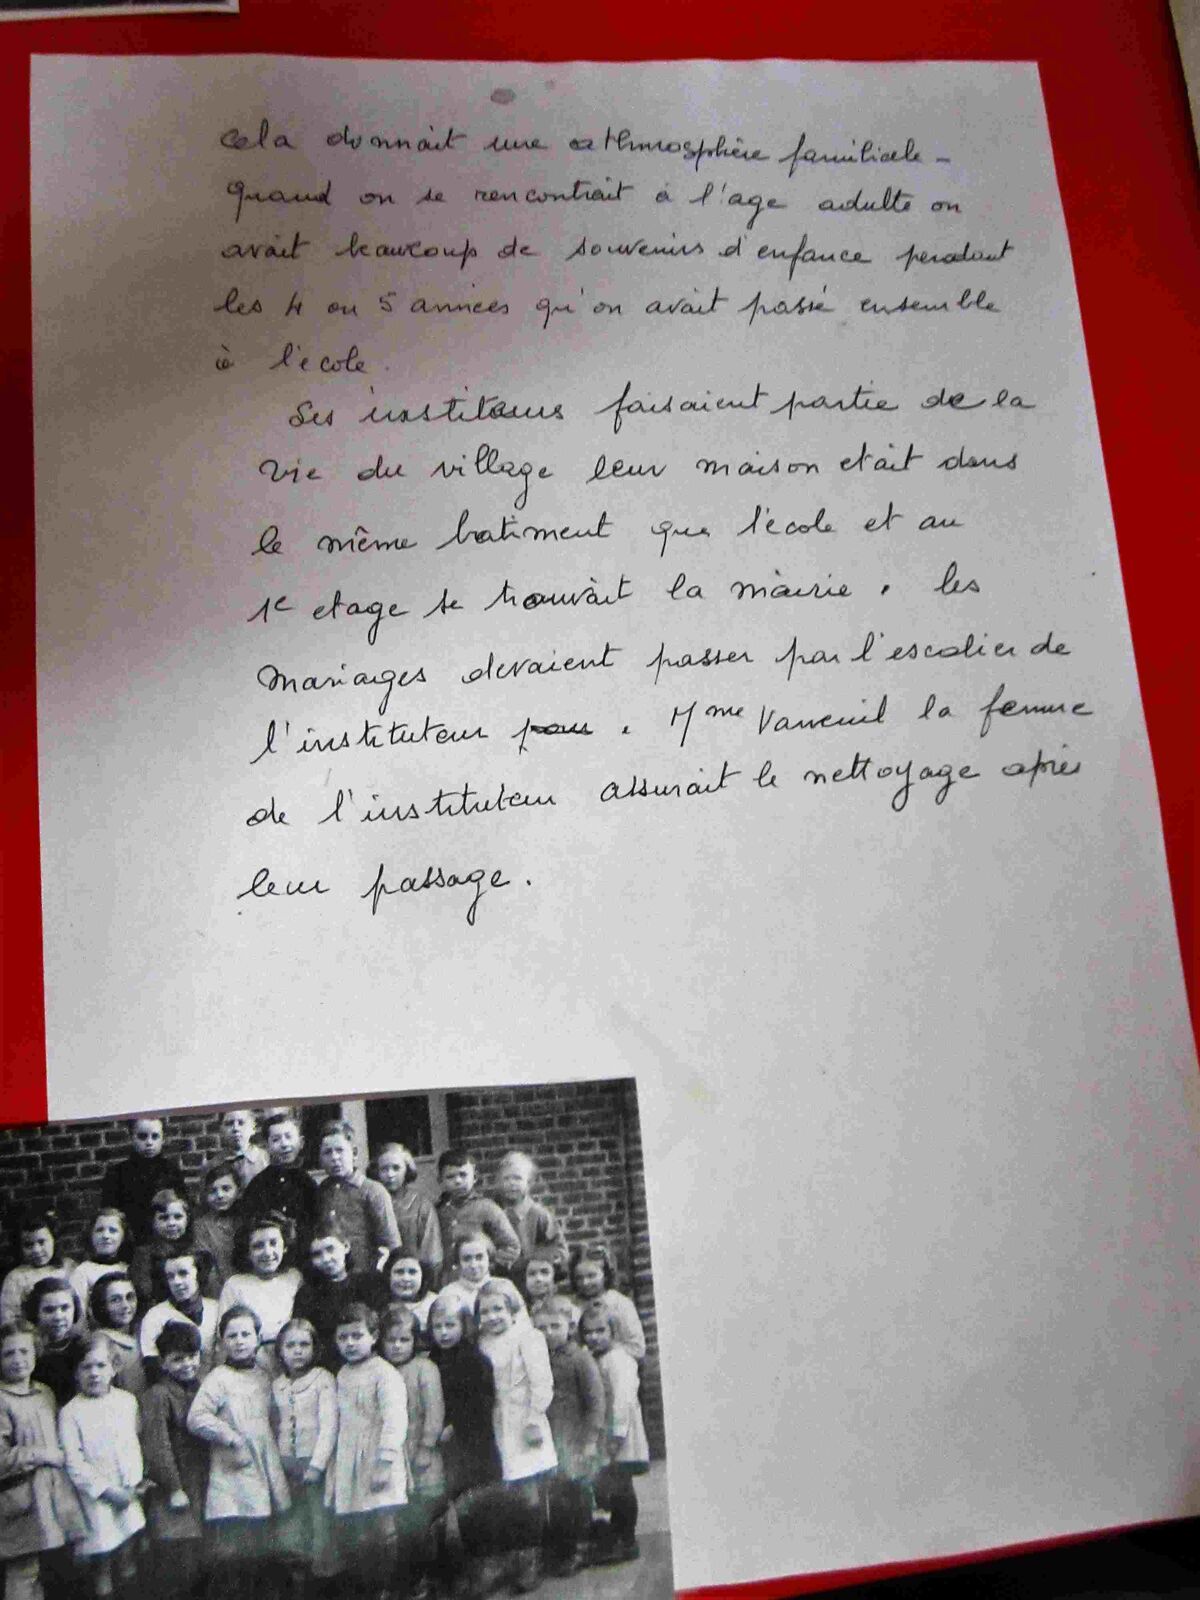 cela donnait une athmosphère familiale -
quand on se rencontrait à l'age adulte on
avait beaucoup de souvenirs d'enfance pendant
les 4 ou 5 années qu'on avait passé ensemble
à l'école.
Les instituteurs faisaient partie de la
vie du village leur maison etait dans
le même batiment que l'école et au
1e etage se trouvait la mairie. les
mariages devaient passer par l'escalier de
l'instituteur pour. Mme la femme
de l'instituteur assurait le nettoyage après
leur passage.